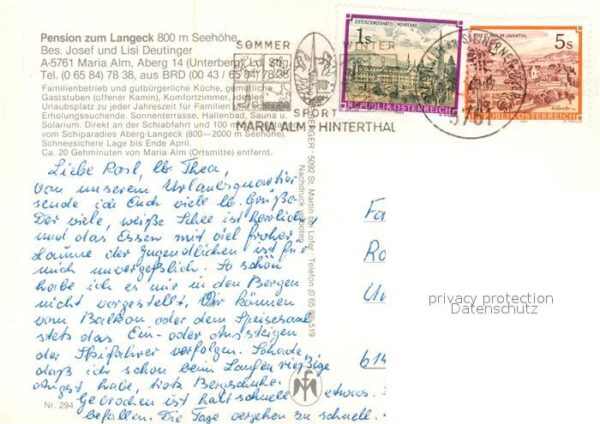 Pension zum Langeck 800 m Seehöhe
Bes. Josef und Lisi Deutinger
A-5761 Maria Alm, Aberg 14 (Unterberg), Ld. Sbg.
Tel. (0 65 84) 78 38, aus BRD (00 43 / 65 84) 78 38
Familienbetrieb und gutbürgerliche Küche, gemütliche
Gaststuben (offener Kamin), Komfortzimmer,
Urlaubsplatz zu jeder Jahreszeit für Familien
Erholungssuchende. Sonnenterrasse, Hallenbad, Sauna u.
Solarium. Direkt an der Schiabfahrt und 100 m
vom Schiparadies Aberg-Langeck (800—2000 m Seehöhe).
Schneesichere Lage bis Ende April.
Ca. 20 Gehminuten von Maria Alm (Ortsmitte) entfernt.
SOMMER WINTER
SPORT
MARIA ALM - HINTERTHAL
1s
ZISTERZIENSERABTEI MEHRERAU
REPUBLIK ÖSTERREICH
5s
LAVANTTAL
REPUBLIK ÖSTERREICH
5092 St. Martin bei Lofer - Telefon (0 65 88) 519
Nachdruck verboten
Liebe Rosl, lb. Thea,
von unserem Urlaubsquartier
sende ich Euch viele lb. Grüße.
Der viele, weiße Schnee ist herrlich
und das Essen mit viel froher
Laune der Jugendlichen ist für
mich unvergeßlich. So schön
habe ich es mir in den Bergen
nicht vorgestellt. Wir können
vom Balkon oder dem Speisesaal
stets das Ein- oder Aussteigen
der Skifahrer verfolgen. Schade,
daß ich schon beim Laufen
Angst habe, trotz Bergschuhe.
Gebrochen ist halt schnell etwas.
befallen. Die Tage vergehen zu schnell.
Fa
Ro
Un
614
Nr. 294
privacy protection
Datenschutz